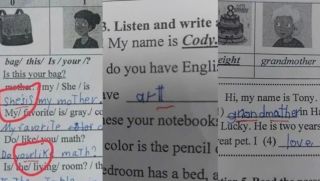 0
1
bag/ this/ Is / your /?
Is this your bag?
mother/ my / She / is
She is my mother.
My/ favorite/ is/ gray./ co
My favorite color
Do/ like/ you/ math?
Do you like math?
Is/ he/ living/ room? / th
3. Listen and write a
My name is Cody.
do you have Engli
ve art
ese your notebook
color is the pencil (
edroom has a bed, a
8
eight
grandmother
Hi, my name is Tony.
grandmother in Ha
Lucky. He is two years
reat pet. I (4) love